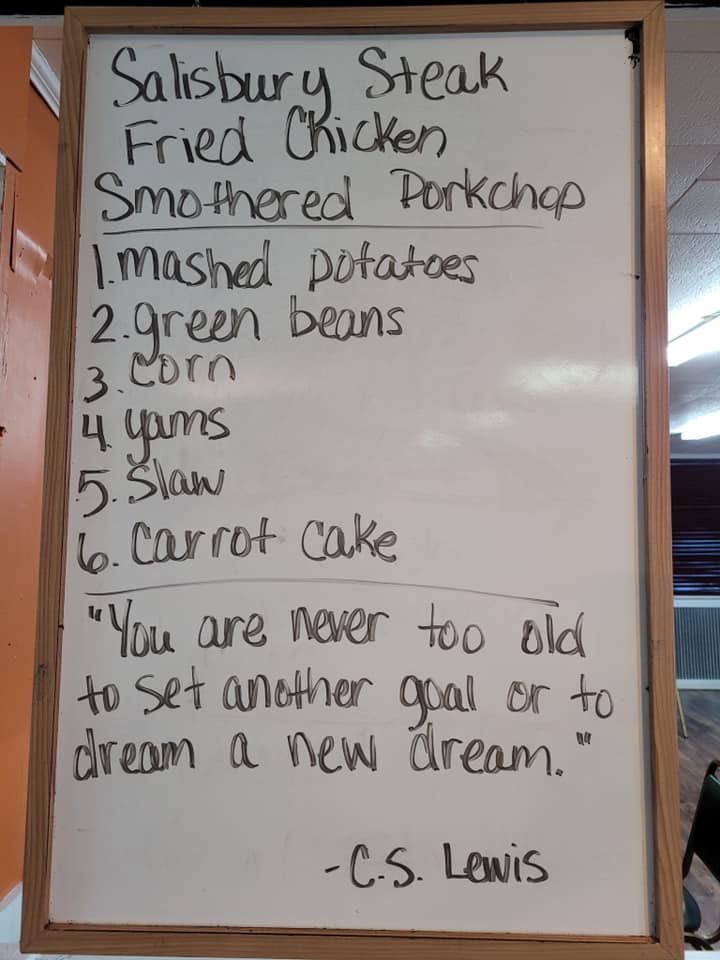 Salisbury Steak
Fried Chicken
Smothered Porkchop
1. mashed potatoes
2. green beans
3. corn
4. yams
5. Slaw
6. Carrot Cake
"You are never too old
to set another goal or to
dream a new dream.""
-C.S. Lewis